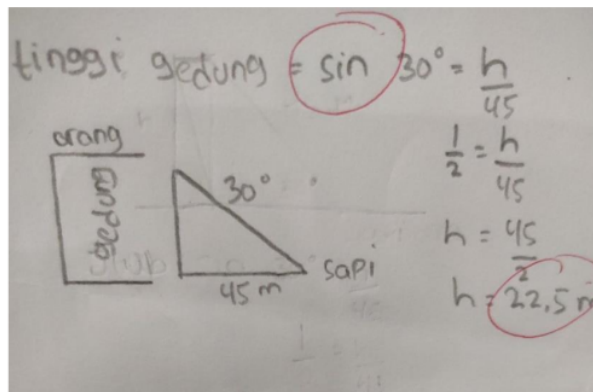 tinggi gedung = sin 30° = h/45
1/2 = h/45
h = 45/2
h = 22,5 m
orang
gedung
30°
45 m
sapi